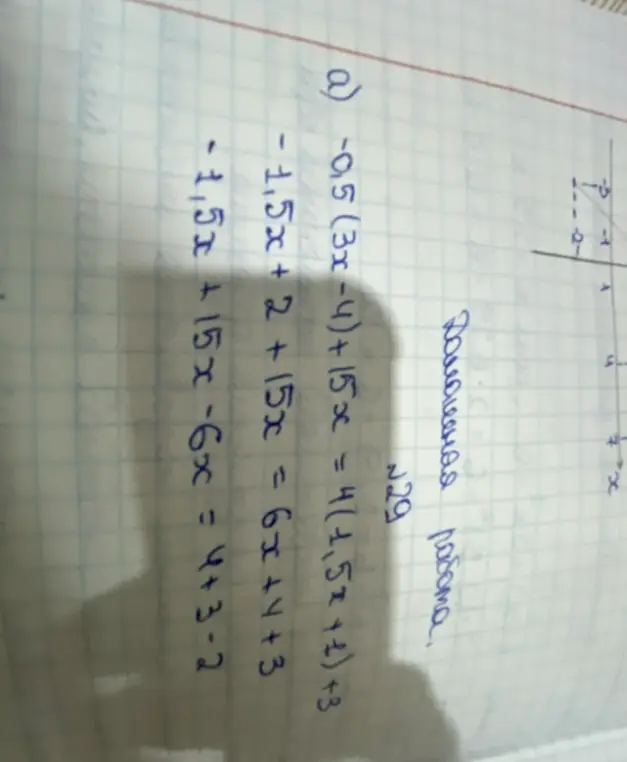 -3 -1 1 4 7 x
-2
Домашняя работа.
№29
а) -0,5(3x-4)+15x = 4(1,5x+1)+3
-1,5x+2+15x = 6x+4+3
-1,5x+15x-6x = 4+3-2